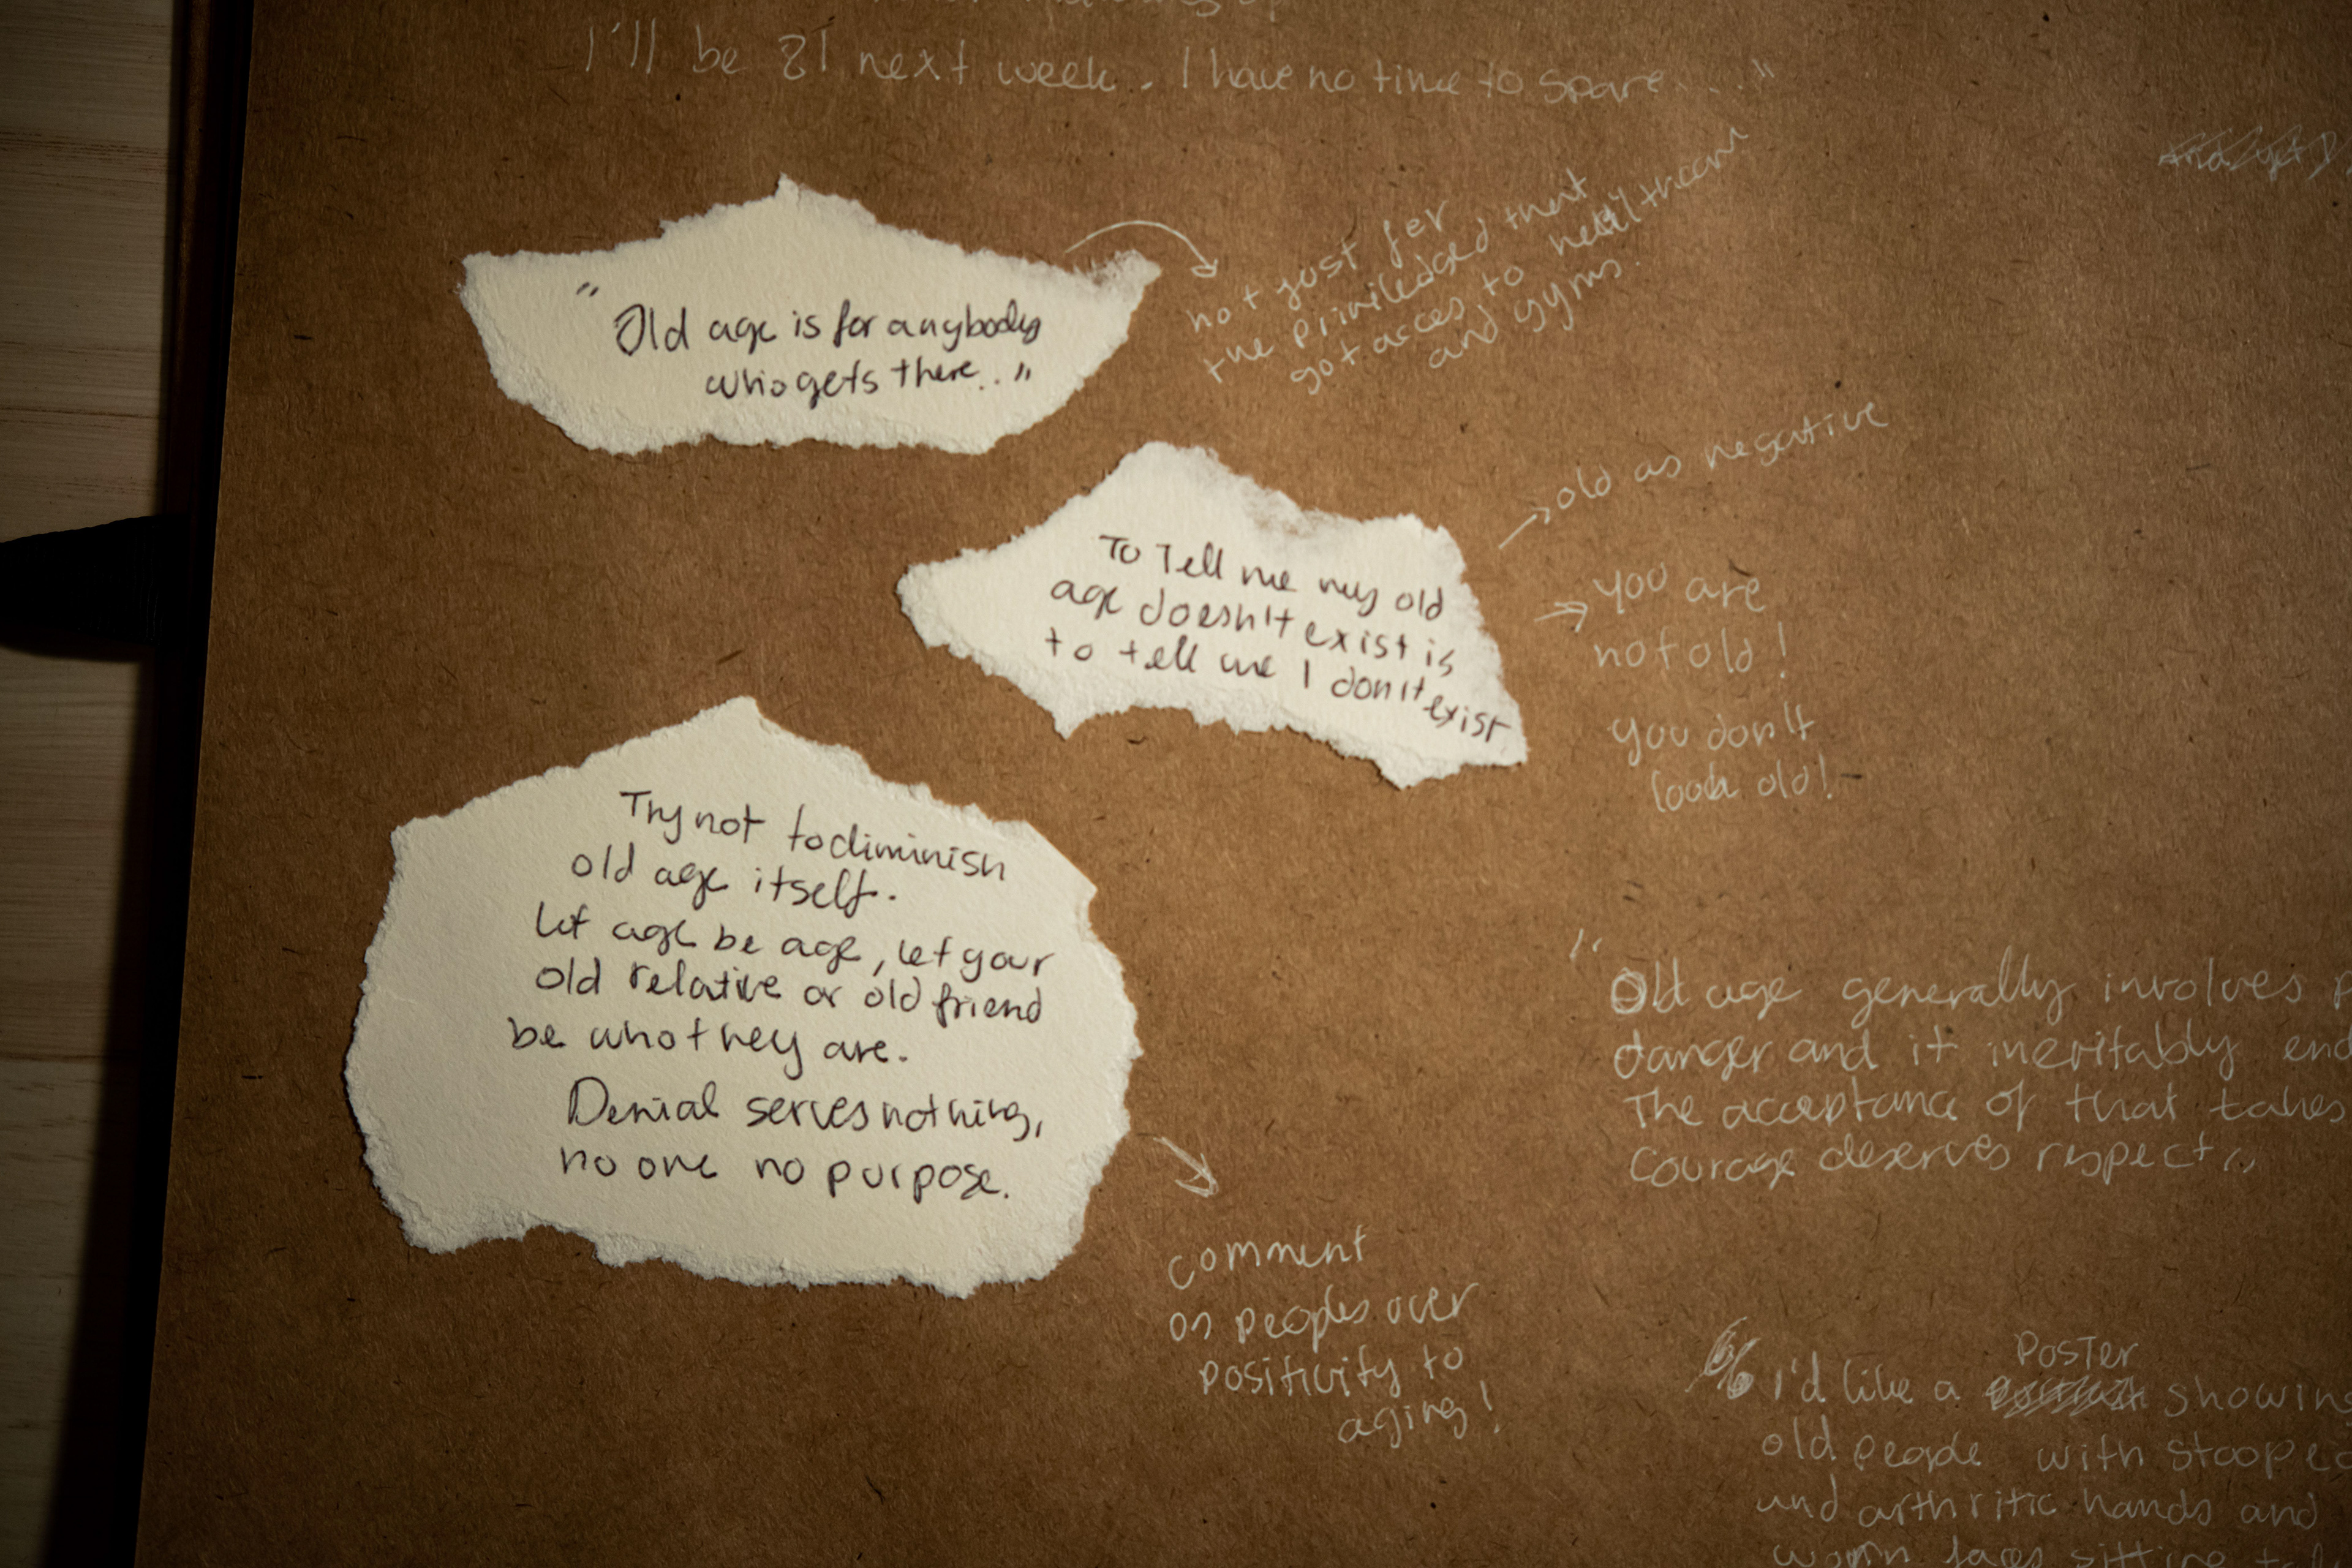 I'll be 81 next week. I have no time to spare...."
" Old age is for anybody
who gets there.. "
not just for
the priviledged that
got acces to healthcare
and gyms.
To Tell me my old
age doesn't exist is
to tell me I don't exist
old as negative
you are
not old!
you don't
look old!
Try not to diminish
old age itself.
Let age be age, let your
old relative or old friend
be who they are.
Denial serves nothing,
no one no purpose.
comment
on peoples over
positivity to
aging!
"
Old age generally involves
danger and it inevitably end
The acceptance of that takes
courage deserves respect"
POSTER
" I'd like a showin
old people with stooped
and arthritic hands and
worn faces sitting